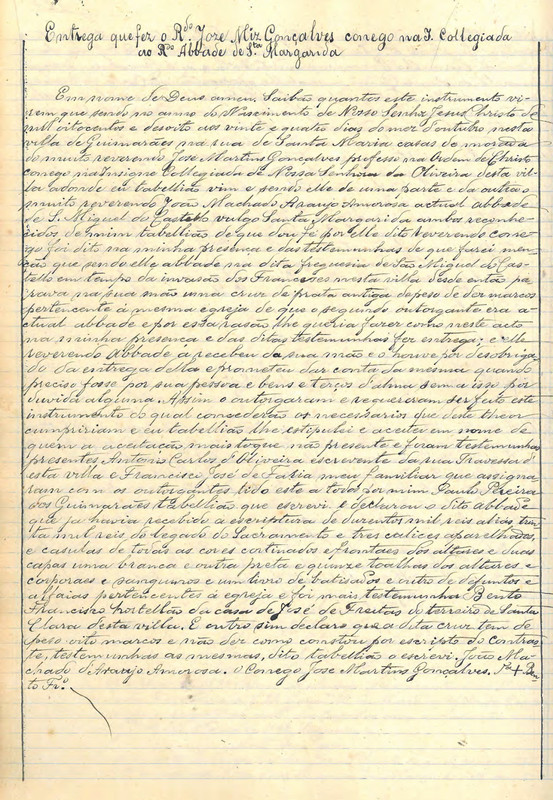 Entrega que fez o Rdo. Joze Miz. Gonçalves conego na I. Collegiada
ao Rdo. Abbade de Sta. Margarida
Em nome de Deus amen Saibão quantos este instrumento vi-
rem que sendo no anno do Nascimento de Nosso Senhor Jesus Christo de
mil oitocentos e desoito aos vinte e quatro dias do mez d'outubro nesta
villa de Guimarães na rua de Santa Maria casas de morada
do muito reverendo José Martins Gonçalves professo na Ordem de Christo
conego na Insigne Collegiada de Nossa Senhora da Oliveira desta vil-
la adonde eu tabellião vim e sendo elle de uma parte e da outra o
muito reverendo João Machado Araujo Amorosa actual abbade
de S. Miguel do Castello vulgo Santa Margarida ambos reconhe-
cidos de mim tabellião de que dou fé por elle dito reverendo cone-
go foi dito na minha presença e das testemunhas de que farei men-
ção que sendo elle abbade na dita freguesia de São Miguel do Cas-
tello em tempo da invasão dos Francezes nesta villa desde então pa-
rava na sua mão uma cruz de prata antiga de peso de dez marcos
pertencente á mesma egreja de que o segundo outorgante era a-
ctual abbade e por esta rasão lhe queria fazer como neste acto
na minha presença e das ditas testemunhas fez entrega; e elle
reverendo abbade a recebeu da sua mão e o houve por desobriga-
do da entrega della e prometeu dar conta da mesma quando
preciso fosse por sua pessoa e bens e terços d'alma sem a isso por
duvida alguma. Assim o outorgaram e requereram ser feito este
instrumento do qual concederão os necessarios que deste theor
cumpririam e eu tabellião lhe estipulei e aceitei em nome de
quem a aceitação mais toque não presente e foram testemunhas
presentes Antonio Carlos d'Oliveira escrevente da rua Travessa d'
esta villa e Francisco José de Faria meu familiar que assigna-
ram com os outorgantes lido este a todos por mim Paulo Pereira
dos Guimarães tabellião que escrevi. E declarou o dito abbade
que ja havia recebido a escriptura de duzentos mil reis aliás, trin-
ta mil reis do legado do Sacramento e tres calices aparelhados,
e casulas de todas as cores cortinados e frontaes dos altares e duas
capas uma branca e outra preta e quinze toalhas dos altares, e
corporaes e sanguinos e um livro de batisados e outro de defuntos e
alfaias pertencentes á egreja e foi mais testemunha Bento
Francisco hortellão da casa de José de Freitas do terreiro de Santa
Clara desta villa. E outro sim declaro que a dita cruz tem de
peso oito marcos e não dez como constou por escripto do contras-
te, testemunhas as mesmas, dito tabellião o escrevi. João Ma-
chado d'Araujo Amorosa. O Conego Jose Martins Gonçalves. + Ben-
to Fr.co